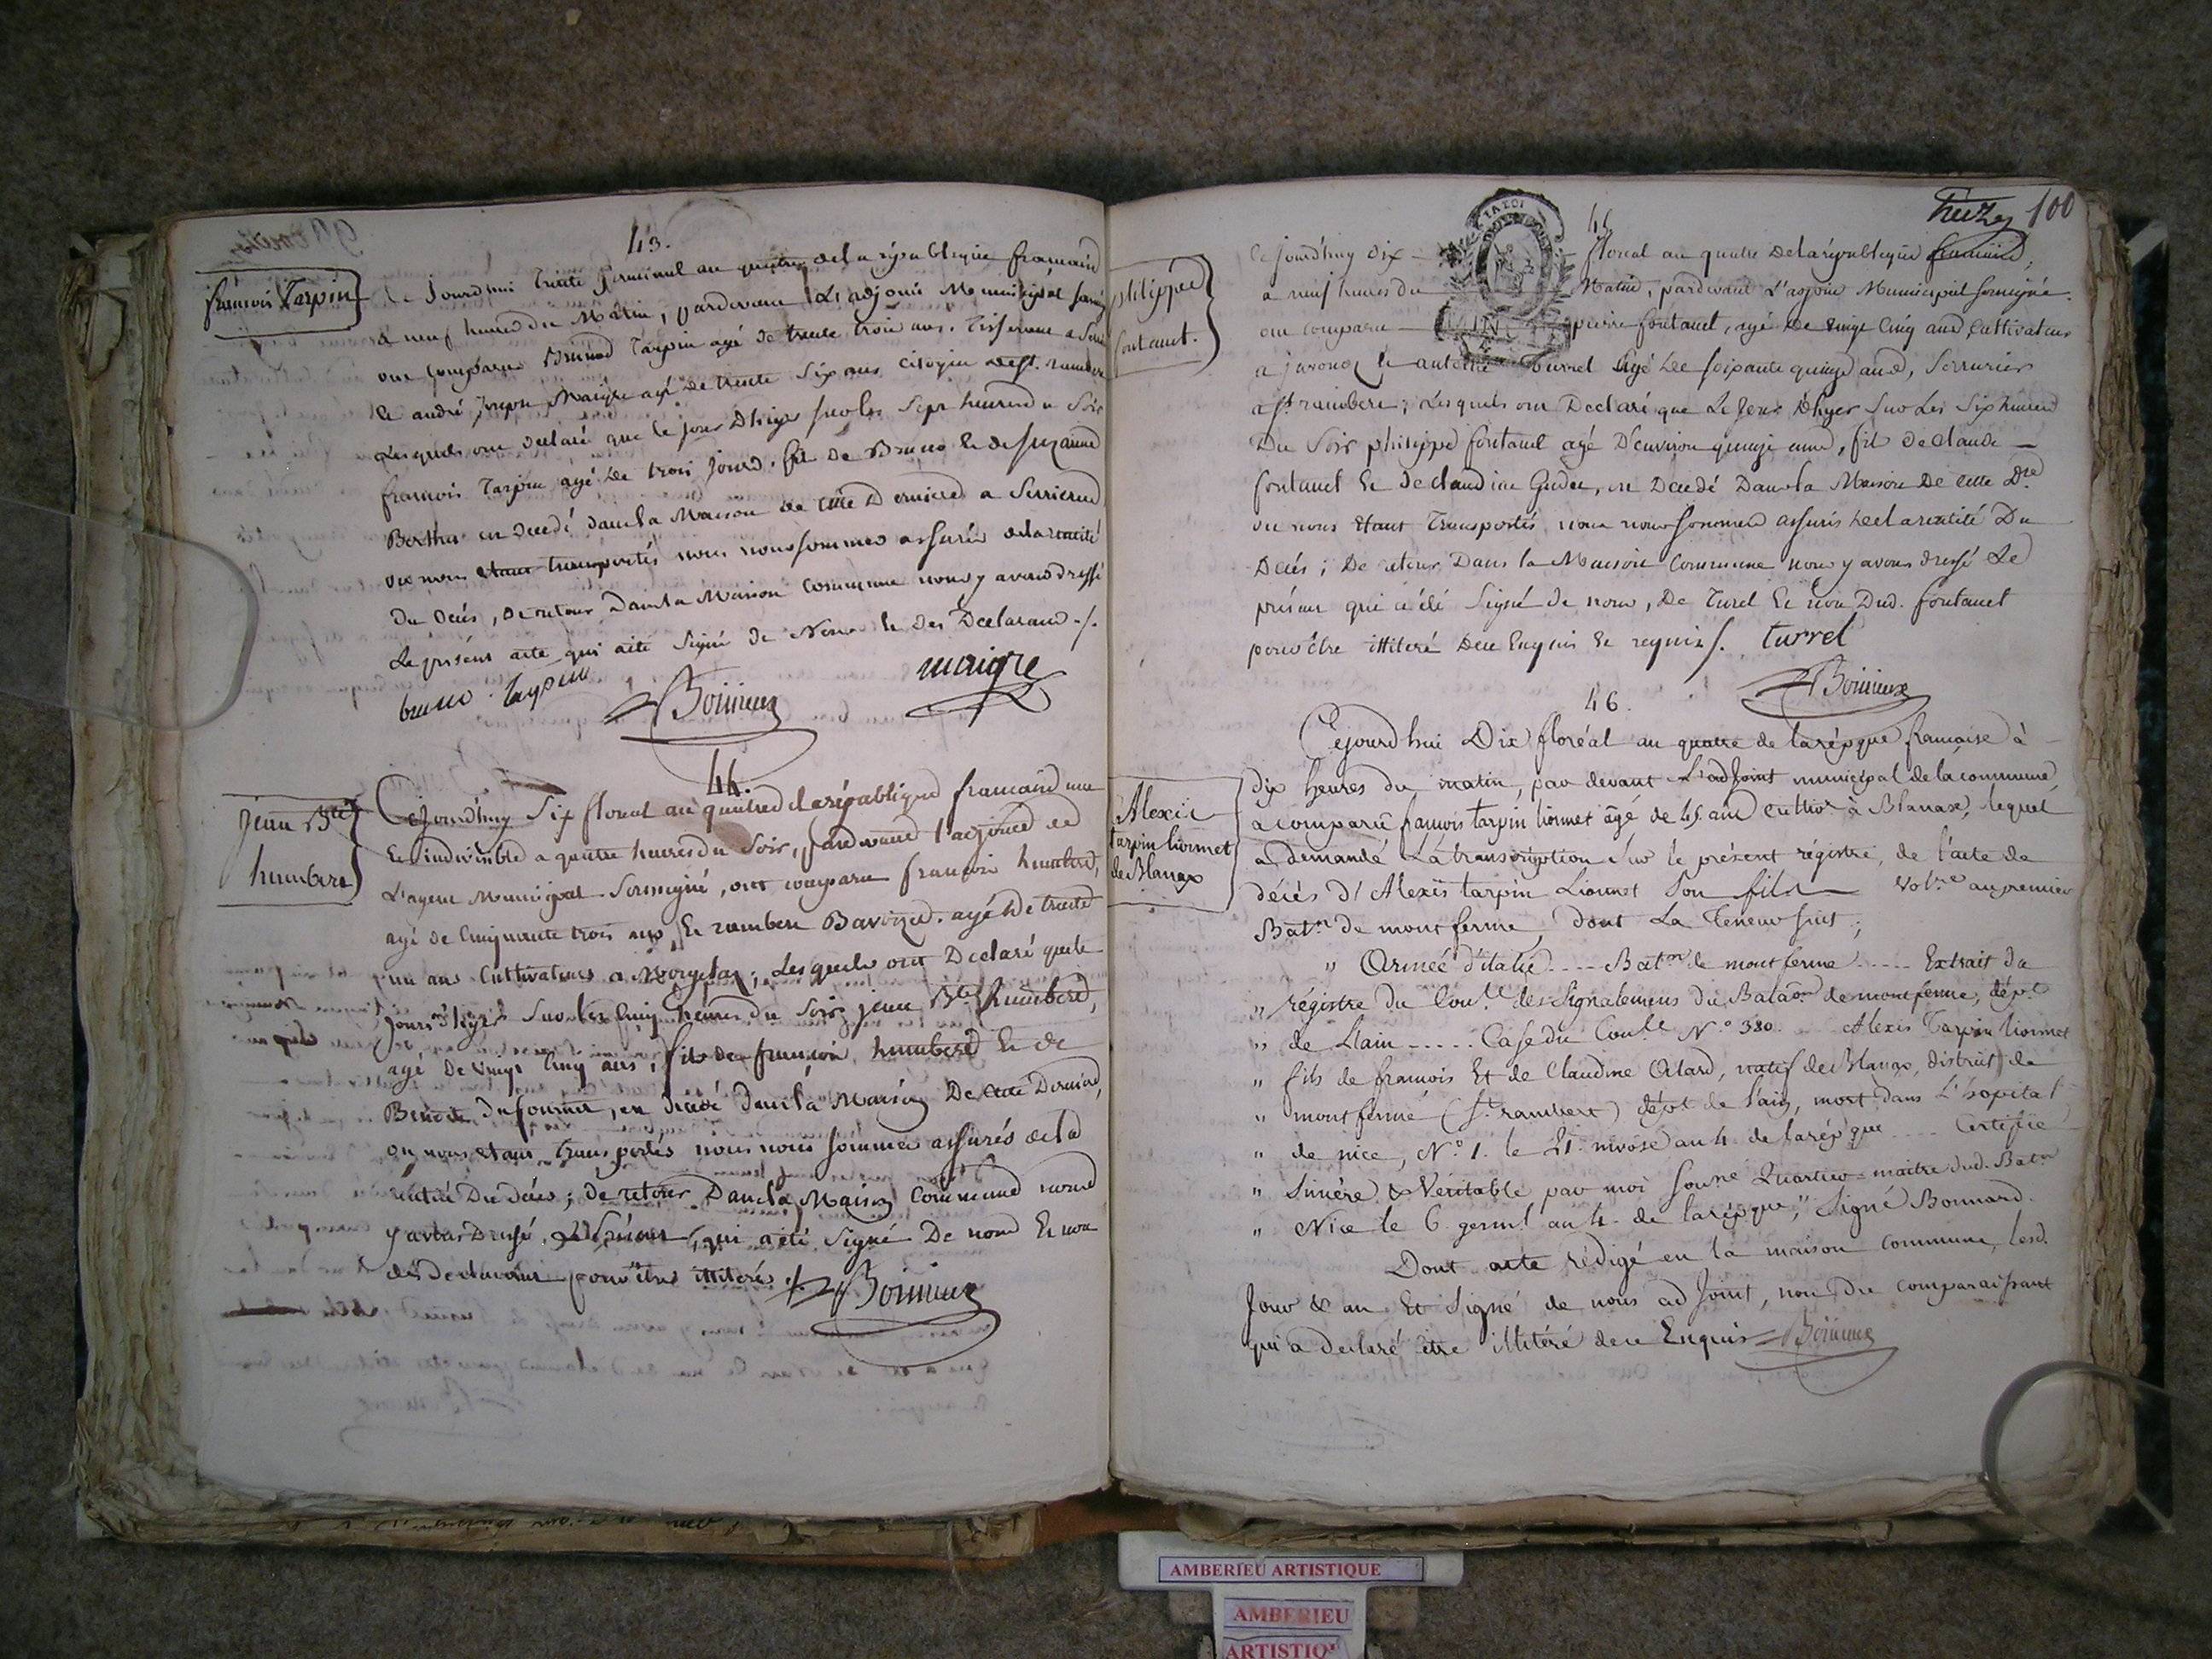 43.
françois Tarpin
Ce Jourd'hui Trente Germinal an quatre de la république francaise
a neuf heures du Matin, pardevant L'adjoint Municipal soussigné
ont comparu Bruno Tarpin agé de trente trois ans. Tisserand a
Et andré Joseph Maigre agé de trente Six ans citoyen de St. rambert
Lesquels ont declaré que le jour D'hier sur les Sept heures du Soir
francois Tarpin agé de trois jours. fils de Bruno Et de suzanne
Berthet est decedé dans la Maison de cette Derniere a Serrieres
ou nous etant transportés nous nous sommes assurés de la realité
du decés, De retour Dans la Maison Commune nous y avons dressé
Le présent acte qui a été Signé de Nous Et des Declarans ./.
bruno Tarpin
Boinieux
maigre
44.
Jean Bte
humbert
Cejourd'huy Six floreal an quatre de la république francaise une
Et indivisible a quatre heures du Soir, pardevant l'adjoint de
L'agent Municipal Soussigné, ont comparu francois humbert,
agé de Cinquante trois ans, Et rambert Bavozet. agé de trente
un ans Cultivateurs a ; Lesquels ont Declaré que le
jour d'hyer Sur les Cinq heures du Soir jean Bte humbert,
agé De vingt Cinq ans, fils de francois humbert Et de
Benoite Dufournet, est decedé dans la Maison De cette Derniere,
ou nous etant transportés nous nous sommes assurés de la
réalité Du decés ; de retour Dans la Maison Commune nous
y avons Dressé Le Présent, qui a été Signé De nous Et non
des declarans pour être illiterés ./. Boinieux
100
45
philippe
fontanet.
Ce jourd'huy dix floreal an quatre de la république francaise,
a neuf heures du Matin, pardevant L'adjoint Municipal soussigné.
ont comparu pierre fontanet, agé de vingt Cinq ans, Cultivateur
a Et antoine Turrel agé de soixante quinze ans, Serrurier
a St. rambert ; Lesquels ont Declaré que Le Jour d'hyer Sur Les Six heures
Du Soir philippe fontanet agé D'environ quinze ans, fils de claude
fontanet Et de claudine , est Decedé Dans la Maison De cette Dre
ou nous etant Transportés nous nous sommes assurés de la realité Du
Decés ; De retour Dans la Maison Commune nous y avons dressé Le
présent qui a été Signé de nous, De Turel Et non Dud. fontanet
pour être illiteré De ce Enquis Et requis ./. Turrel
Boinieux
46.
Alexis
tarpin liormet
de Blanax
Cejourd'hui Dix floréal an quatre de la répque francaise à
dix heures du matin, par devant L'adjoint municipal de la commune,
a comparu françois tarpin liormet âgé de 45 ans cultivr à Blanax, lequel
a demandé La transcription Sur le présent régistre, de l'acte de
décés d'Alexis tarpin Liormet Son fils Volre au premier
Batn de montferme, dont La Teneur suit ;
" Armée d'italie .... Baton de montferme ..... Extrait du
" régistre du Conle des Signalemens du Bataon de montferme, dépt
" de Lain ..... Case du Conle N.° 380. Alexis Tarpin liormet
" fils de francois Et de Claudine Allard, natif de Blanax, district de
" montferme (St. rambert) dépt de l'ain, mort dans L'hopital
" de nice, N.° 1. le 21. nivose an 4. de la répque .... Certifié
" Sincére & Véritable par moi Quartier = maitre dud. Baton
" Nice le 6. germl an 4. de la répque, " Signé Bonnard.
Dont acte rédigé en la maison commune, lesd.
Jour & an Et Signé de nous adjoint, non Du comparaissant
qui a declaré être illitéré de ce Enquis Boinieux
AMBERIEU ARTISTIQUE
AMBERIEU
ARTISTIQ